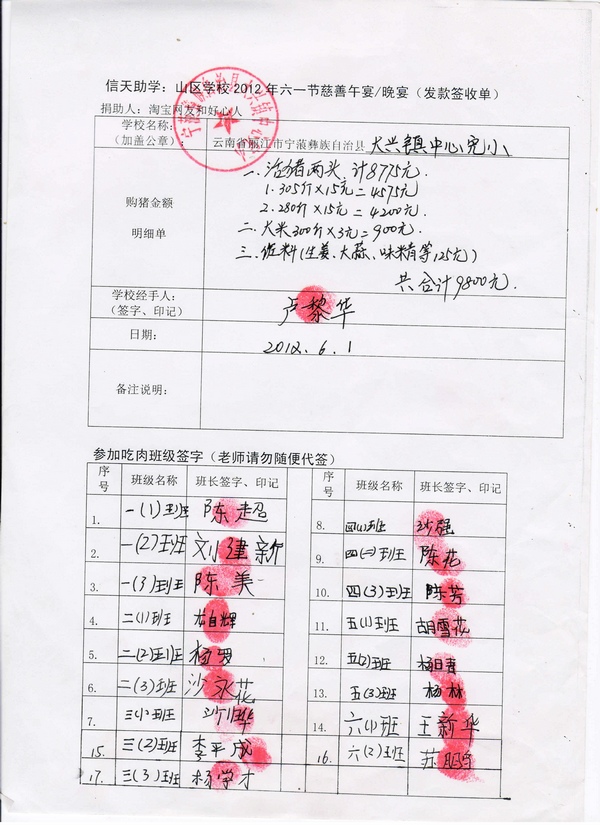 信天助学:山区学校2012年六一节慈善午宴/晚宴(发款签收单)
捐助人:淘宝网友和好心人
学校名称:
(加盖公章):
云南省丽江市宁蒗彝族自治县 大兴镇中心完小
购猪金额
明细单
一、活猪两头,计8775元.
1.305斤×15元=4575元
2.280斤×15元=4200元.
二、大米300斤×3元=900元.
三、佐料(生姜、大蒜、味精等125元)
共合计9800元.
学校经手人:
(签字、印记)
卢黎华
日期:
2012.6.1
备注说明:
参加吃肉班级签字(老师请勿随便代签)
序号 班级名称 班长签字、印记
1. 一(1)班 陈超
2. 一(2)班 刘建新
3. 一(3)班 陈美
4. 二(1)班 自辉
5. 二(2)班 杨罗
6. 二(3)班 沙永花
7. 三(1)班 沙归华
15. 三(2)班 李平成
17. 三(3)班 杨学才
序号 班级名称 班长签字、印记
8. 四(1)班 沙强
9. 四(二)班 陈花
10. 四(3)班 陈芳
11. 五(1)班 胡雪花
12. 五(2)班 杨日青
13. 五(3)班 杨林
14. 六(1)班 王新华
16. 六(2)班 苏